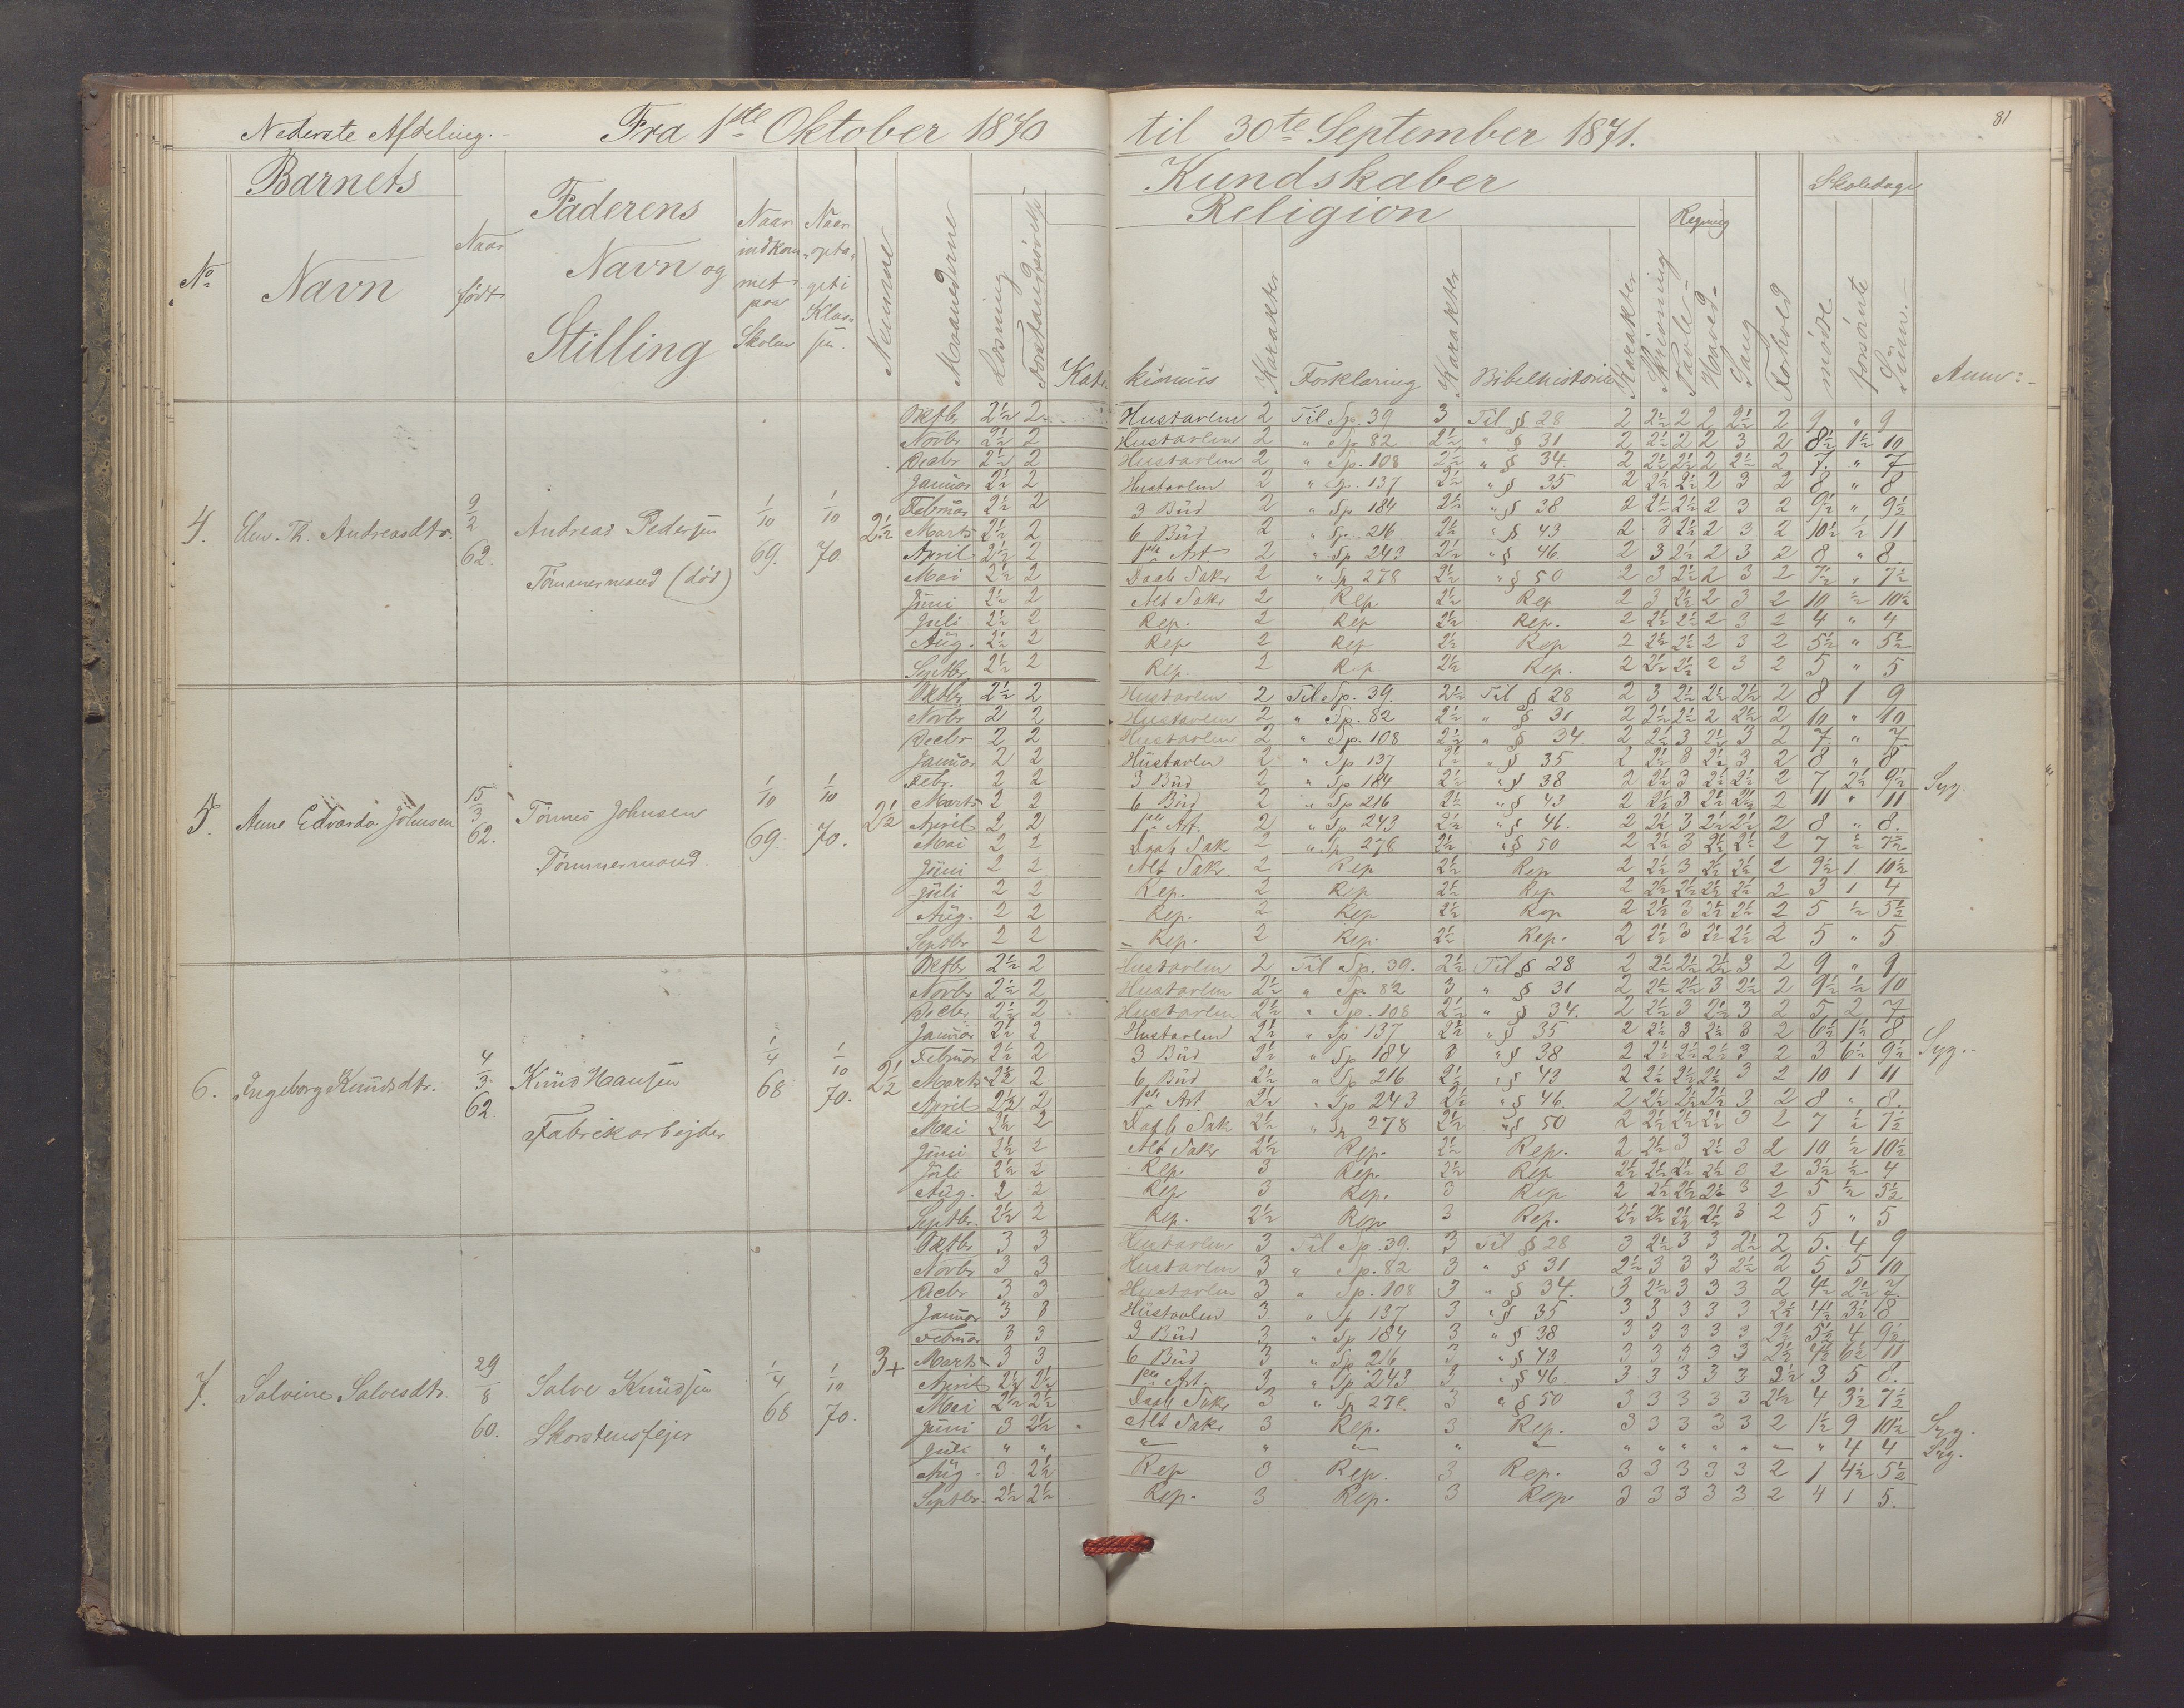 Nederste Afdeling. Fra 1ste Oktober 1870 til 30te September 1871. 81
Barnets Kundskaber Skoledage
Faderens Religion Regning
No Navn Naar født Navn og Stilling Naar indkommet paa Skolen Naar optaget i Klassen Numne Maanederne Læsning Forstandsøvels. Katekismus Karakter Forklaring Karakter Bibelhistorie Karakter Skrivning Tavle- Hoved- Sang Forhold møde forsømte Sum. Anm:
4. Elen Th. Andreasdtr. 9/2 62. Andreas Pedersen Tømmermand (død) 1/10 69. 1/10 70. 2½
Oktbr 2½ 2 Hustavlen 2 Til Sp. 39 3 Til § 28 2 2½ 2 2 2½ 2 9 " 9
Novbr 2½ 2 Hustavlen 2 " Sp. 82 2½ " § 31 2 2½ 2 2 3 2 8½ 1½ 10
Decbr 2½ 2 Hustavlen 2 " Sp. 108 2½ " § 34. 2 2½ 2½ 2 2½ 2 7. " 7
Januar 2½ 2 Hustavlen 2 " Sp. 137 2½ " § 35 2 2½ 2½ 2 3 2 8 " 8
Februar 2½ 2 3 Bud 2 " Sp 184 2½ " § 38 2 2½ 2½ 2 3 2 9½ " 9½
Marts 2½ 2 6 Bud 2 " Sp. 216 2½ " § 43 2 3 2½ 2 3 2 10½ ½ 11
April 2½ 2 1ste Art. 2 " Sp 243 2½ " § 46 2 3 2½ 2 3 2 8 " 8
Mai 2½ 2 Daab Sakr 2 " Sp 278 2½ " § 50 2 3 2½ 2 3 2 7½ " 7½
Juni 2½ 2 Alt Sakr 2 Rep. 2½ Rep 2 3 2½ 2 3 2 10 ½ 10½
Juli 2½ 2 Rep. 2 Rep 2½ Rep. 2 2½ 2½ 2 3 2 4 " 4
Aug. 2½ 2 Rep 2 Rep 2½ Rep 2 2½ 2½ 2 3 2 5½ " 5½
Septbr 2½ 2 Rep. 2 Rep. 2½ Rep. 2 2½ 2½ 2 3 2 5 " 5
5. Anne Edvarda Johnsen 15/3 62. Tønnes Johnsen Tømmermand. 1/10 69. 1/10 70. 2½
Oktbr 2½ 2 Hustavlen 2 Til Sp. 39. 2½ Til § 28 2 3 2½ 2½ 2½ 2 8 1 9
Novbr 2 2 Hustavlen 2 " Sp. 82 2½ " § 31 2 2½ 2½ 2 2½ 2 10 " 10
Decbr 2 2 Hustavlen 2 " Sp. 108 2½ " § 34. 2 2½ 3 2½ 3 2 7. " 7.
Januar 2 2 Hustavlen 2 " Sp 137 2½ " § 35 2 2½ 3 2½ 3 2 8 " 8
Febr. 2 2 3 Bud 2 " Sp 184 2½ " § 38 2 2½ 3 2½ 2½ 2 7 2½ 9½ Syg.
Marts 2 2 6 Bud 2 " Sp 216 2½ " § 43 2 2½ 3 2½ 2½ 2 11 " 11
April 2 2 1ste Art. 2 " Sp 243 2½ " § 46. 2 2½ 3 2½ 2½ 2 8 " 8.
Mai 2 2 Daab Sak 2 " Sp 278 2½ " § 50 2 2½ 3 2½ 2½ 2 7 ½ 7½
Juni 2 2 Alt Sak. 2 Rep 2½ Rep 2 2½ 3 2½ 2½ 2 9½ 1 10½
Juli 2 2 Rep. 2 Rep 2½ Rep 2 2½ 2½ 2½ 2½ 2 3 1 4
Aug. 2 2 Rep. 2 Rep 2½ Rep 2 2½ 3 2½ 2½ 2 5 ½ 5½
Septbr 2 2 Rep. 2 Rep. 2½ Rep. 2 2½ 3 2½ 2½ 2 5 " 5
6. Ingeborg Knudsdtr. 4/3 62. Knud Hansen Fabrikarbejder 1/4 68 1/10 70. 2½
Oktbr 2½ 2 Hustavlen 2 Til Sp. 39. 2½ Til § 28 2 2½ 2½ 2½ 3 2 9 " 9
Novbr 2½ 2 Hustavlen 2½ " Sp 82 3 " § 31 2 2½ 2½ 3 2½ 2 9½ ½ 10
Decbr. 2½ 2 Hustavlen 2½ " Sp. 108 2½ " § 34. 2 2½ 3 2½ 3 2 5 2 7
Januar 2½ 2 Hustavlen 2½ " Sp 137 2½ " § 35 2 2½ 3 2½ 3 2 6½ 1½ 8
Februar 2½ 2 3 Bud 2½ " Sp 184 3 " § 38 2 2½ 2½ 2½ 3 2 3 6½ 9½ Syg.
Marts 2½ 2 6 Bud 2½ " Sp 216 2½ " § 43 2 2½ 2½ 2½ 3 2 10 1 11
April 2½ 2 1ste Art. 2½ " Sp 243 2½ " § 46. 2 2½ 2½ 2½ 3 2 8 " 8.
Mai 2½ 2 Daab Sak 2½ " Sp 278 2½ " § 50 2 2½ 2½ 2½ 3 2 7 ½ 7½
Juni 2½ 2 Alt Sakr 2½ Rep. 2½ Rep. 2 2½ 3 2½ 3 2 10 ½ 10½
Juli 2½ 2 Rep. 3 Rep. 2½ Rep 2½ 2½ 2½ 2½ 3 2 3½ ½ 4
Aug. 2 2 Rep 3 Rep. 3 Rep 2 2½ 2½ 2½ 3 2 5 ½ 5½
Septbr. 2½ 2 Rep. 2½ Rep 3 Rep. 2½ 2½ 2½ 2½ 3 2 5 " 5
7. Salvine Salvesdtr. 29/8 60. Salve Knudsen Skorstensfejer 1/4 68 1/10 70. 3+
Oktbr 3 3 Hustavlen 3 Til Sp. 39. 3 Til § 28 3 2½ 3 3 2½ 2 5. 4 9
Novbr 3 3 Hustavlen 3 " Sp. 82 3 " § 31 2½ 3 3 3 2½ 2 5 5 10
Decbr 3 3 Hustavlen 3 " Sp. 108 3 " § 34. 3 2½ 3 3 3 2 4½ 2½ 7.
Januar 3 3 Hustavlen 3 " Sp 137 3 " § 35 3 3 3 3 3 2½ 4½ 3½ 8
Februar 3 3 3 Bud 3 " Sp 184 3 " § 38 3 3 3 3 3 2½ 5½ 4 9½
Marts 3 3 6 Bud 3 " Sp 216 3 " § 43 3 3 3 3 3 2½ 4½ 6½ 11
April 2½ 2½ 1ste Art. 3 " Sp 243 3 " § 46. 3 3 3 3 3 2½ 3 5 8.
Mai 2½ 2½ Daab Sakr 3 " Sp 278 3 " § 50 3 3 3 3 3 2½ 4 3½ 7½
Juni 3 2½ Alt Sakr 3 Rep. 3 Rep. 3 3 3 3 3 2 1½ 9 10½ Syg.
Juli " " " " " " " " " " " " " " 4 4 Syg.
Aug. 3 2½ Rep 3 Rep. 3 Rep. 3 3 3 3 3 2 1 4½ 5½
Septbr. 2½ 2½ Rep. 3 Rep. 3 Rep 3 3 3 3 3 2 4 1 5.